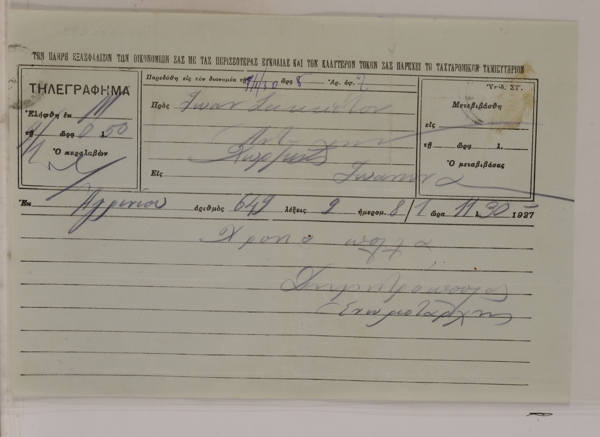 ΤΗΝ ΠΛΗΡΗ ΕΞΑΣΦΑΛΙΣΙΝ ΤΩΝ ΟΙΚΟΝΟΜΙΩΝ ΣΑΣ ΜΕ ΤΑΣ ΠΕΡΙΣΣΟΤΕΡΑΣ ΕΥΚΟΛΙΑΣ ΚΑΙ ΤΟΝ ΚΑΛΛΙΤΕΡΟΝ ΤΟΚΟΝ ΣΑΣ ΠΑΡΕΧΕΙ ΤΟ ΤΑΧΥΔΡΟΜΙΚΟΝ ΤΑΜΙΕΥΤΗΡΙΟΝ
ΤΗΛΕΓΡΑΦΗΜΑ
Ελήφθη εκ
τῇ ὥρᾳ 0 1.50
Ὁ παραλαβὼν
Παρεδόθη εἰς τὸν διανομέα τῇ ὥρᾳ 8
Πρὸς
Εἰς Ιωαννινα
Ὑπόδ. ΣΓ.
Μετεβιβάσθη
εἰς
τῇ ὥρᾳ 1.
Ὁ μεταβιβάσας
Ἐκ Αγρινιου ἀριθμὸς 649 λέξεις 9 ἡμερομ. 8/1 ὥρα 11 1. 30 1927
Χρονια πολλα
Δημητροπουλος
Ενωμοτάρχης